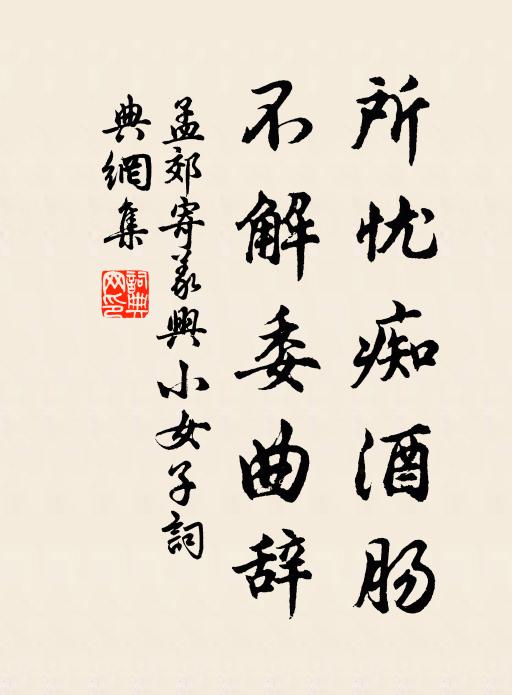 所忧痴酒肠
不解委曲辞
孟郊寄义興小女子詞
典網集
詞典网印